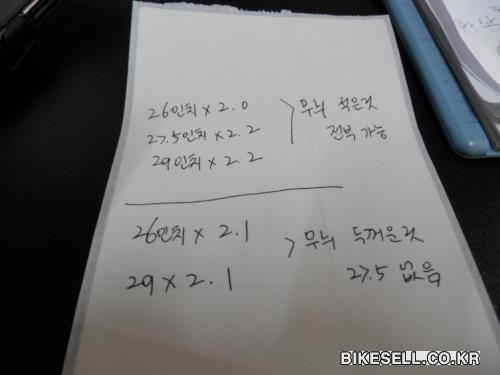 26인치 x 2.0
27.5인치 x 2.2
29인치 x 2.2
> 무늬 적은것
전부 가능
26인치 x 2.1
29 x 2.1
> 무늬 두꺼운것
27.5 없음
BIKESELL.CO.KR